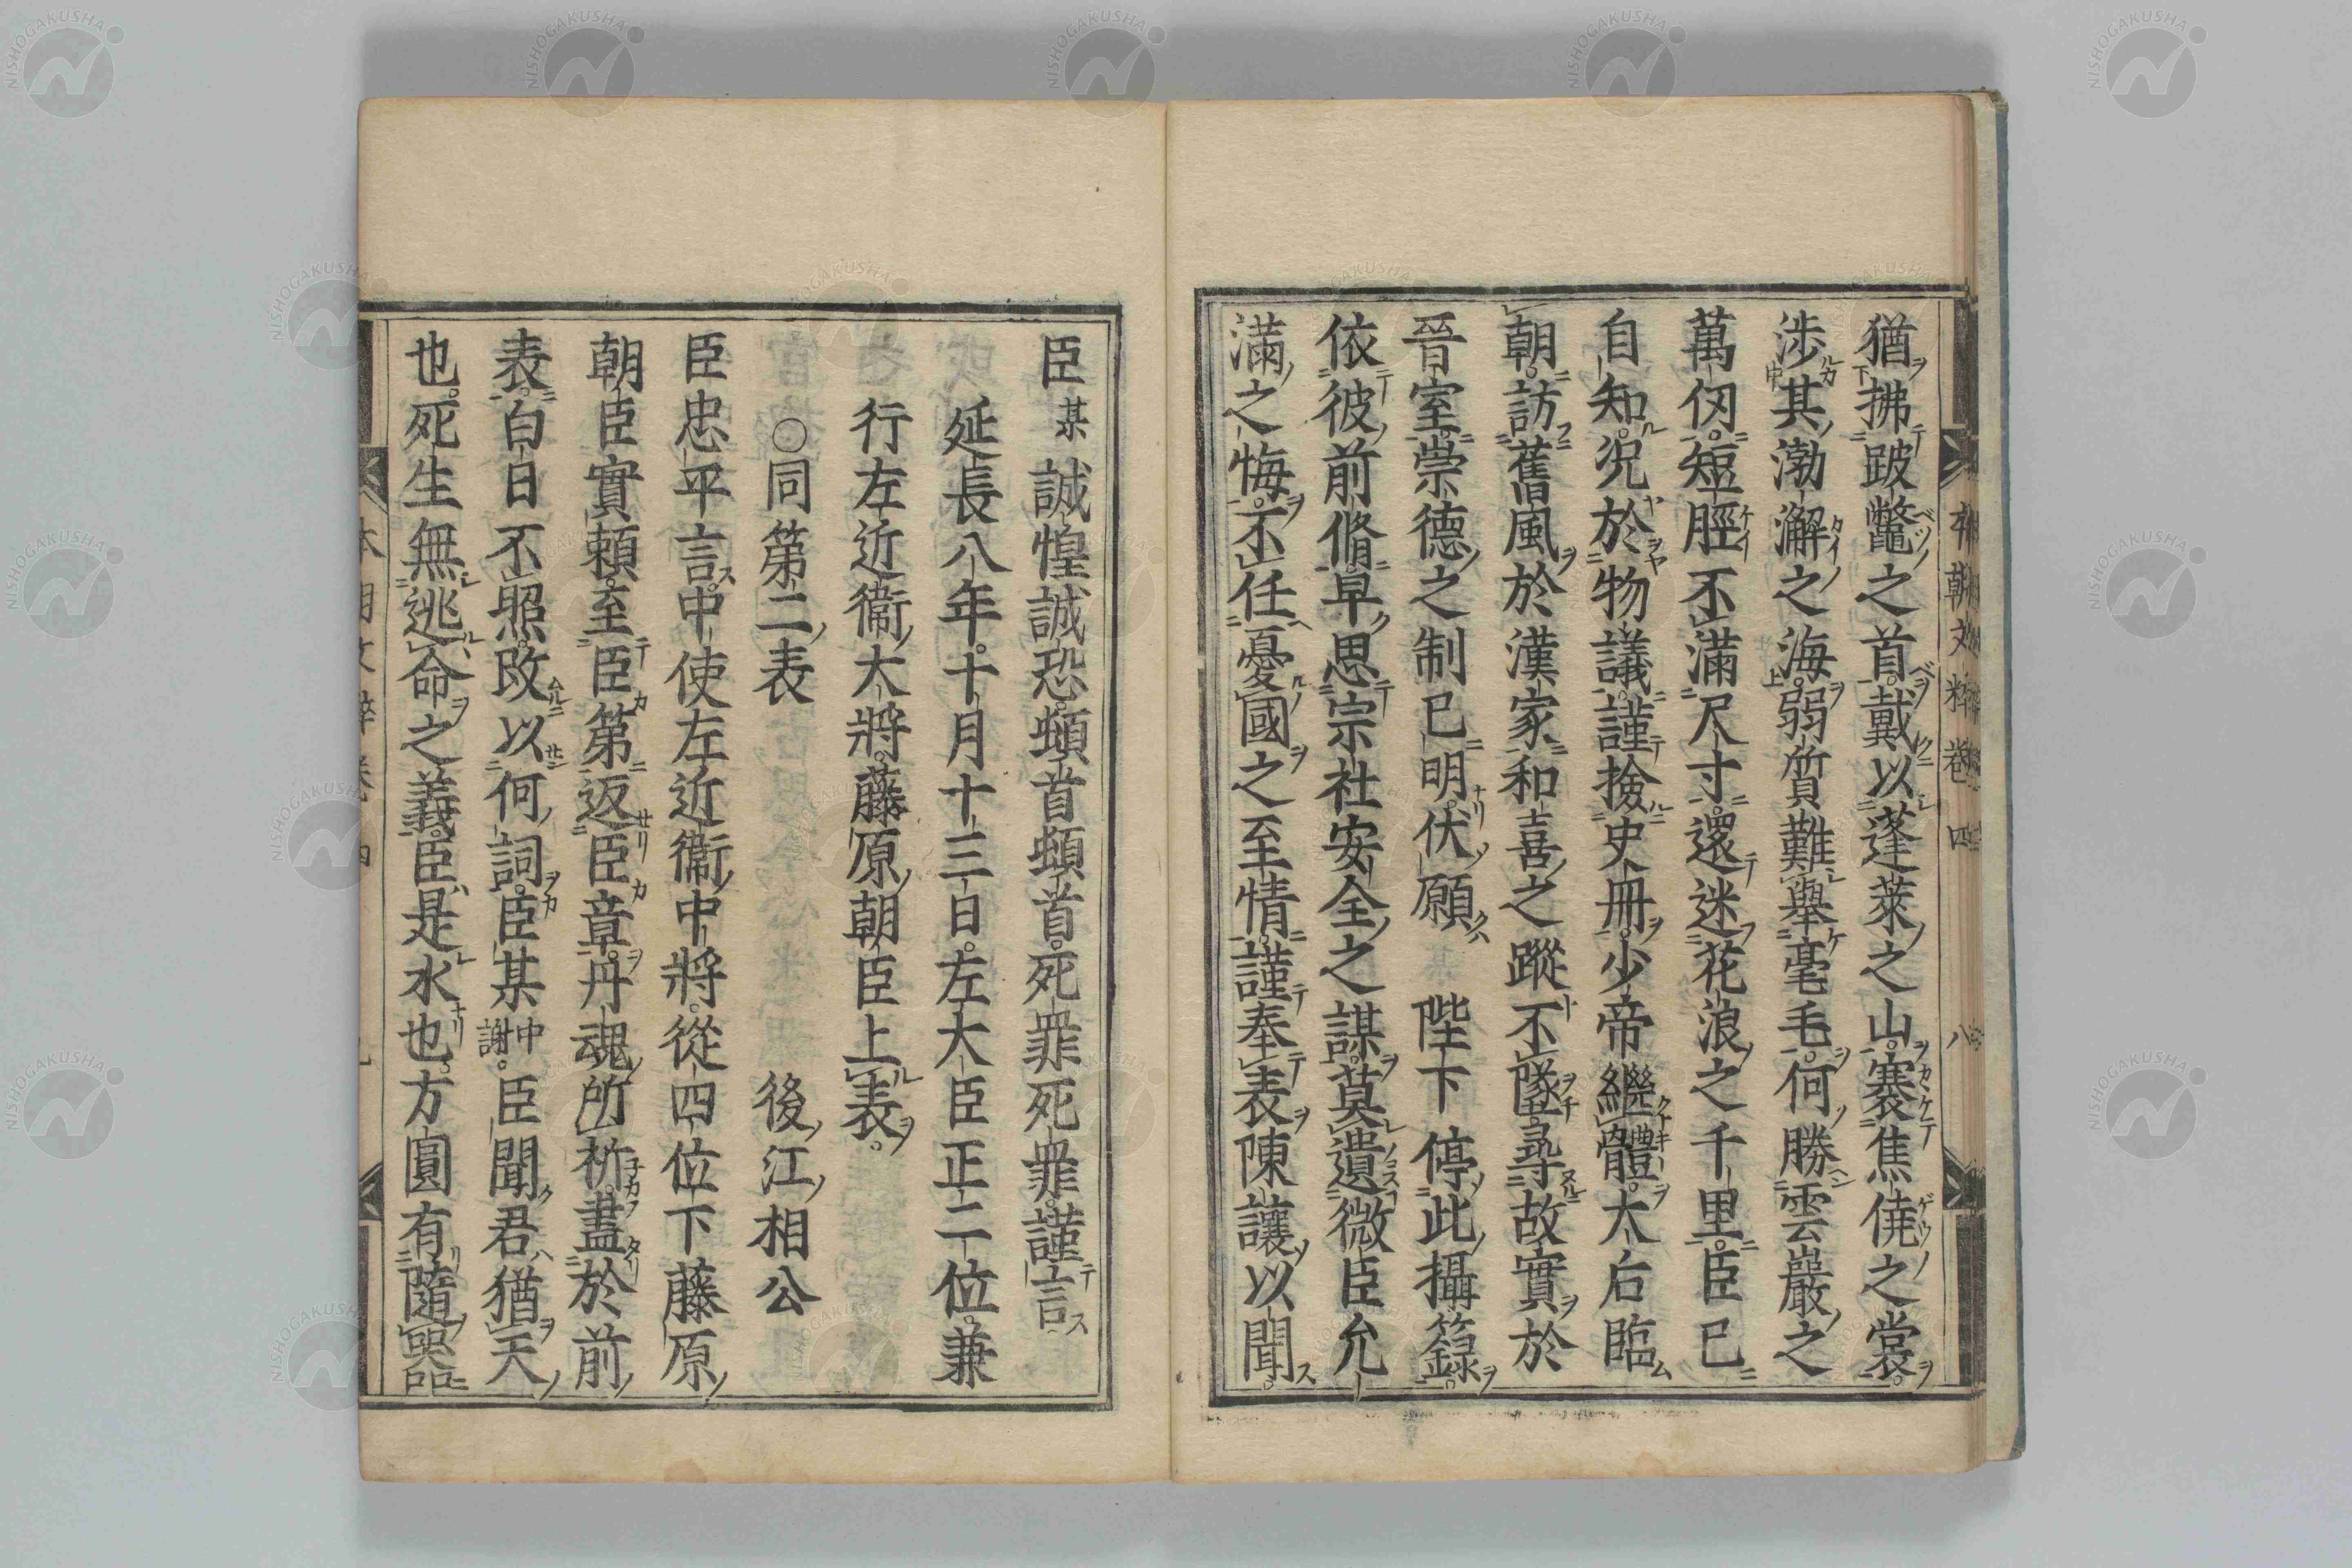 猶拂跛鼈之首。戴以蓬萊之山。褰焦僥之裳。
渉其渤澥之海。弱質難舉毫毛。何勝雲巖之
萬仭。短脛不滿尺寸。還迷花浪之千里。臣已
自知。况於物議。謹撿史冊。少帝繼體。太后臨
朝。訪舊風於漢家。和喜之蹤不墜。尋故實於
晉室。崇德之制已明。伏願 陛下停此攝籙。
依彼前脩。早思宗社安全之謀。莫遺微臣允
滿之悔。不任憂國之至情。謹奉表陳讓以聞。
臣某誠惶誠恐。頓首頓首。死罪死罪。謹言
延長八年。十月十三日。左大臣正二位。兼
行左近衞大將。藤原朝臣上表。
○同第二表 後江相公
臣忠平言。中使左近衞中將。從四位下藤原
朝臣實頼。至臣第返臣章。丹魂所祈。盡於前
表。白日不照。改以何詞。臣某中謝。臣聞君猶天
也。死生無逃命之義。臣是水也。方圓有隨器
本朝文粹卷四 八
NISHOGAKUSHA